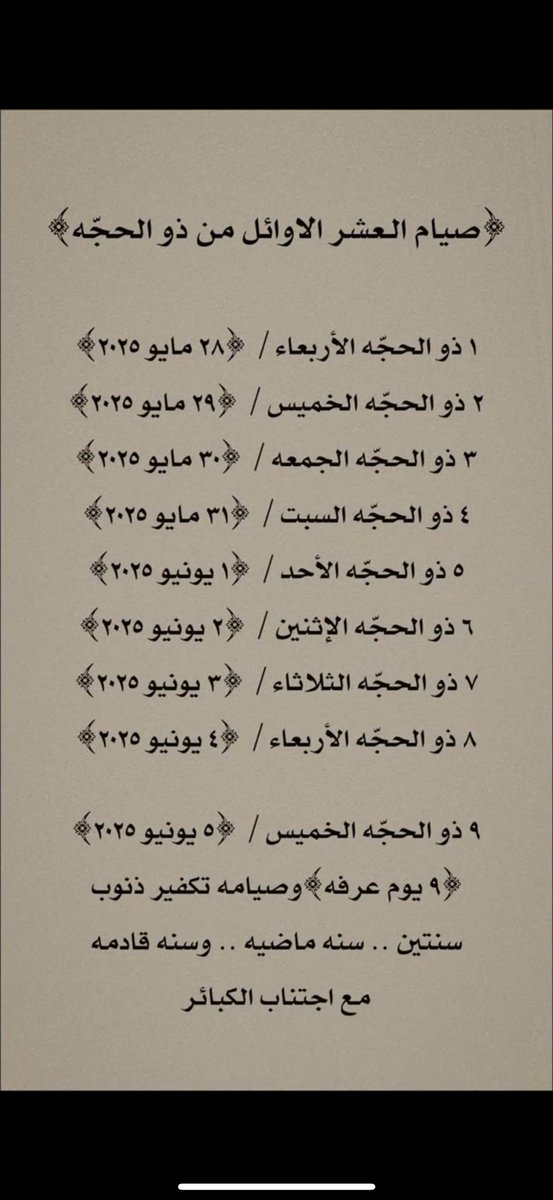 ﴿صيام العشر الاوائل من ذو الحجّه﴾
١ ذو الحجّه الأربعاء / ﴿٢٨ مايو ٢٠٢٥﴾
٢ ذو الحجّه الخميس / ﴿٢٩ مايو ٢٠٢٥﴾
٣ ذو الحجّه الجمعه / ﴿٣٠ مايو ٢٠٢٥﴾
٤ ذو الحجّه السبت / ﴿٣١ مايو ٢٠٢٥﴾
٥ ذو الحجّه الأحد / ﴿١ يونيو ٢٠٢٥﴾
٦ ذو الحجّه الإثنين / ﴿٢ يونيو ٢٠٢٥﴾
٧ ذو الحجّه الثلاثاء / ﴿٣ يونيو ٢٠٢٥﴾
٨ ذو الحجّه الأربعاء / ﴿٤ يونيو ٢٠٢٥﴾
٩ ذو الحجّه الخميس / ﴿٥ يونيو ٢٠٢٥﴾
﴿٩ يوم عرفه﴾وصيامه تكفير ذنوب
سنتين .. سنه ماضيه .. وسنه قادمه
مع اجتناب الكبائر